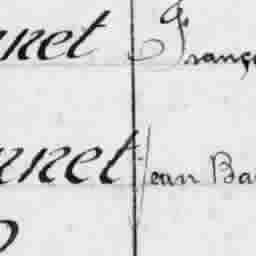 nnet Franço
nnet Jean Ba